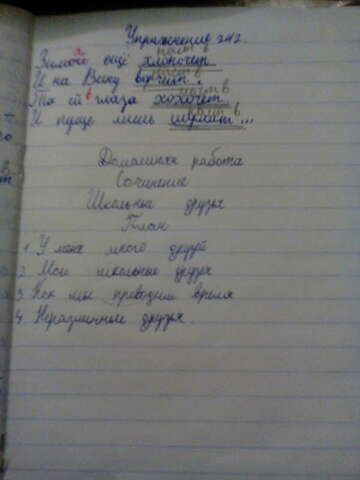 Упражнение 242.
наст в
Зима ещё хлопочет
наст в
И на Весну ворчит.
наст в
Та ей в глаза хохочет
наст в
И пуще лишь шумит...
Домашняя работа
Сочинение
Школьные друзья
План
1 У меня много друзей
2. Мои школьные друзья
3 Как мы проводим время
4. Неразлучные друзья.